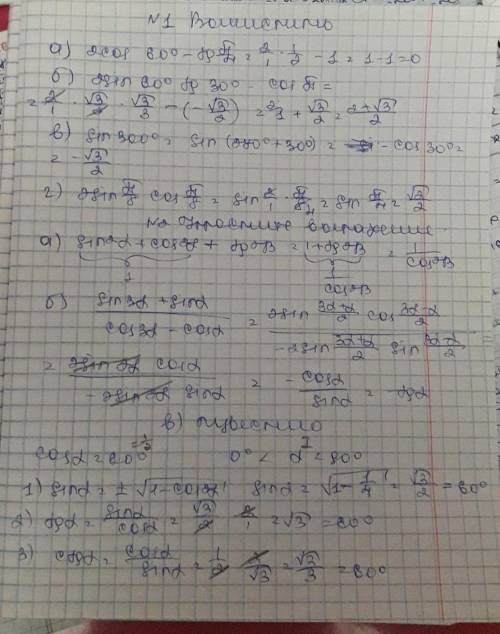 N1 Вычислить
а) 2cos 60° - tg π/4 = 2/1 · 1/2 - 1 = 1 - 1 = 0
б) 2sin 60° tg 30° - cos π/6 =
= 2/1 · √3/2 · √3/3 - (-√3/2) = 2/1 + √3/2 = 2+√3/2
в) sin 300° = sin (270° + 30°) = - cos 30° =
= -√3/2
г) 2sin π/8 cos π/8 = sin 2/1 · π/8 4 = sin π/4 = √3/2
N2 Упростите выражение.
а) sin²α + cos²α + tg²β = 1 + tg²β = 1/cos²β
1 1/cos²β
б) sin3α + sinα / cos3α - cosα = 2sin 3α+α/2 cos 3α-α/2 / -2sin 3α+α/2 sin 3α-α/2
= 2sin2α cosα / -2sin2α sinα = -cosα/sinα =
в) Известно
cosα = 60° = 1/2 0° < α I = 90°
1) sinα = ± √1-cos²α sinα = √1 - 1/4 = √3/2 = 60°
2) tgα = sinα/cosα = √3/2 · 2/1 = √3 = 60°
3) ctgα = cosα/sinα = 1/2 · 2/√3 = √3/3 = 60°